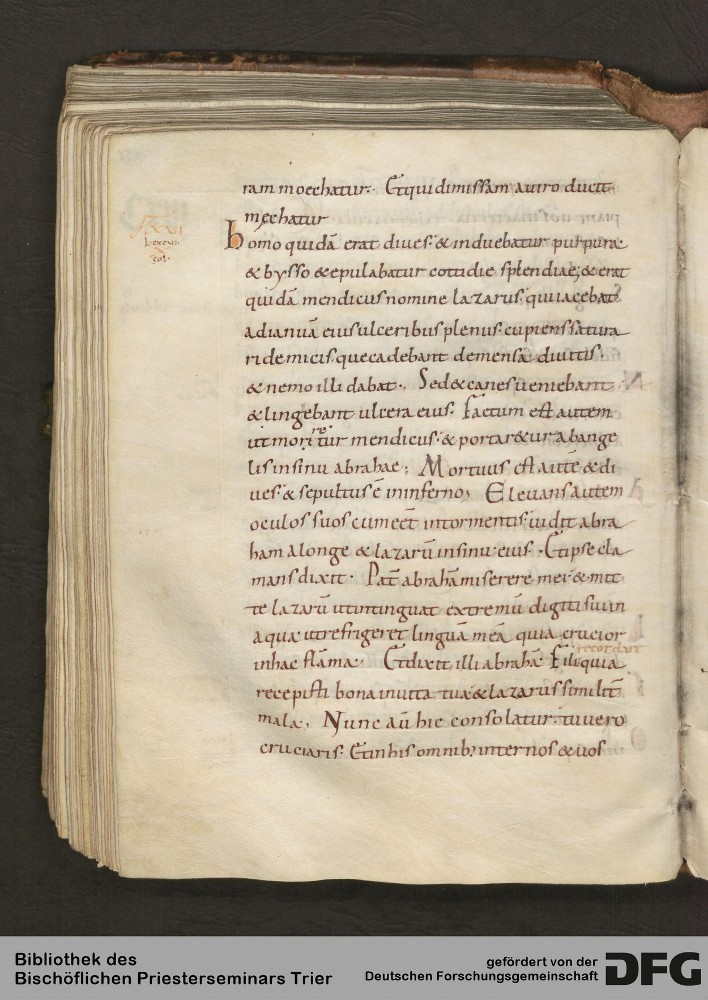 ram moechatur· Et qui dimissam a viro ducit
męchatur
homo quidā erat diues· & induebatur purpura
& bysso & epulabatur cottidie splendiae; & erat
quidā mendicus nomine lazarus· qui iacebat
ad ianuā eius ulceribus plenus· cupiens satura
ri de micis· que cadebant de mensa diuitis·
& nemo illi dabat· Sed & canes ueniebant
& lingebant ulcera eius· Factum est autem
ut morire&tur mendicus· & portar&ur ab ange
lis in sinu abrahae; Mortuus est autē & di
ues· & sepultus ē in inferno; Eleuans autem
oculos suos cum eēt in tormentis· uidit abra
ham a longe & lazarū in sinu eius· Et ipse cla
mans dixit· Pat̄ abrahā miserere mei· & mit
te lazarū ut intinguat extremū digiti sui in
aqua ut refrigeret linguā meā quia crucior
recordare
in hac flāma· Et dixit illi abrahā· Fili quia
recepisti bona in uita tua & lazarus similit̄
mala, Nunc aū hic consolatur· tu uero
cruciaris· Et in his omnib; inter nos & uos
Bibliothek des
Bischöflichen Priesterseminars Trier
gefördert von der
Deutschen Forschungsgemeinschaft
DFG